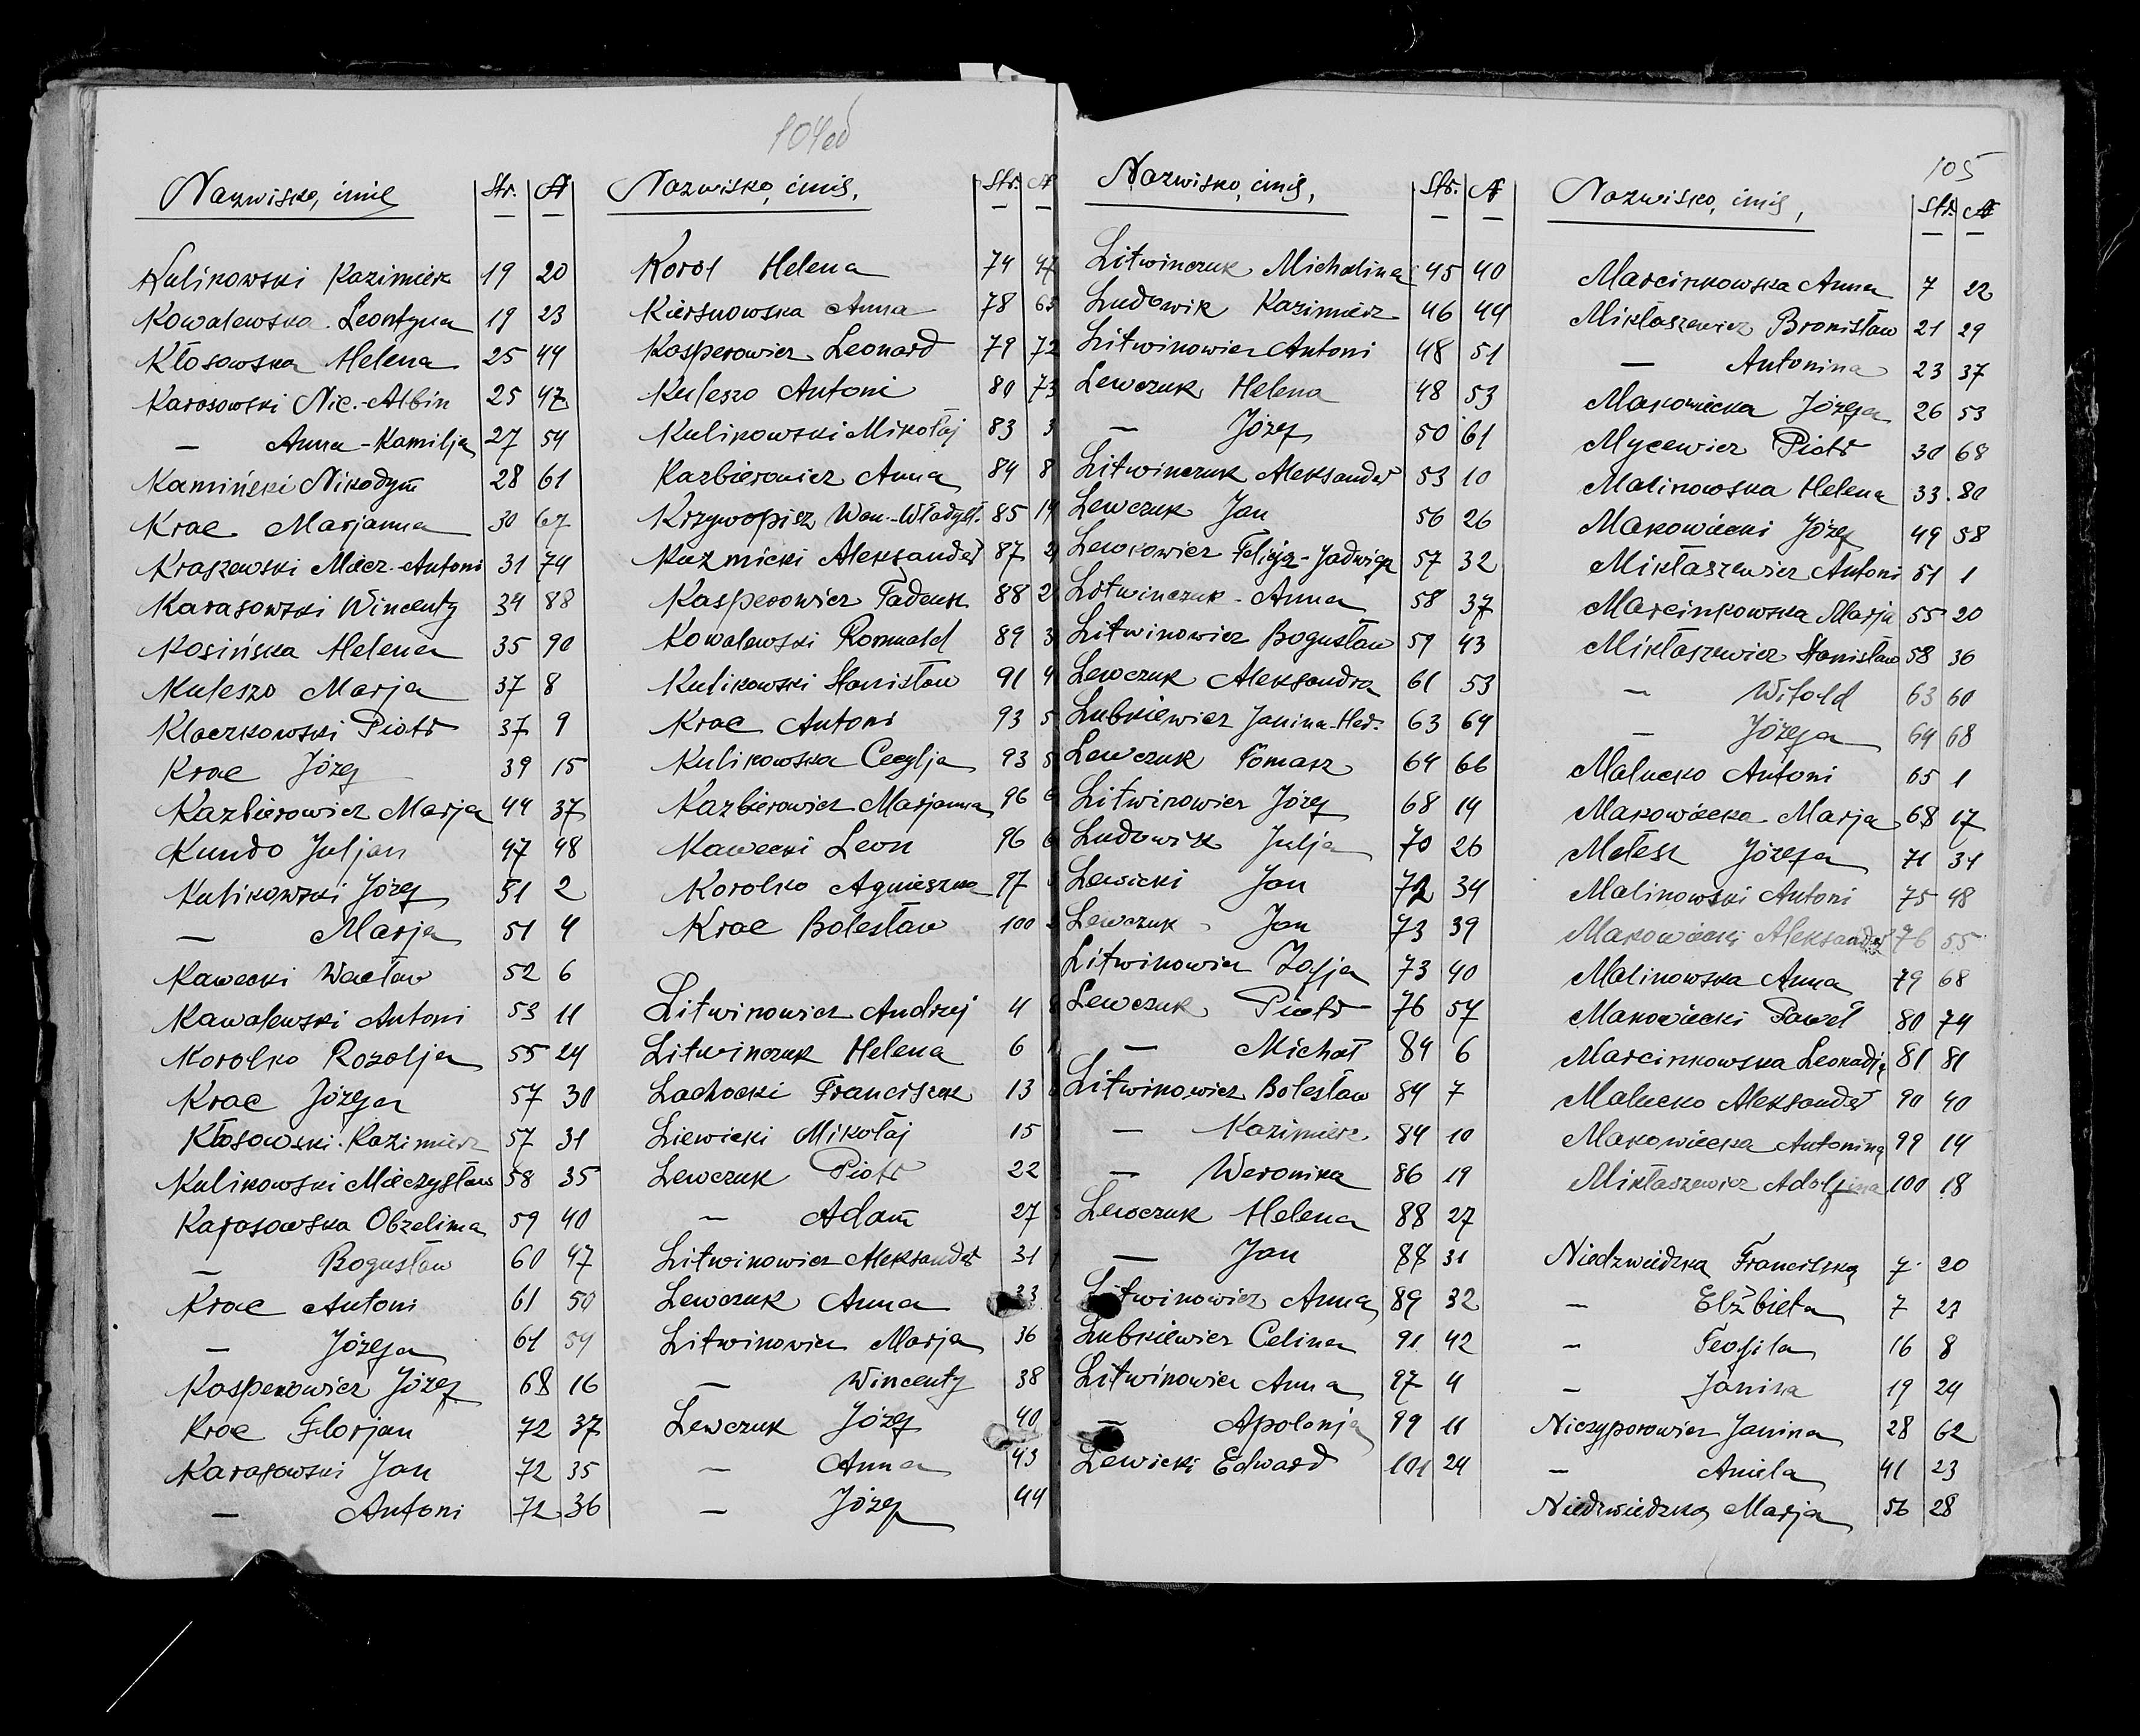 104об
Nazwisko, imię Str. №
Kulikowski Kazimierz 19 20
Kowalewska Leontyna 19 23
Kłosowska Helena 25 44
Karosowski Nic.-Albin 25 47
— Anna-Kamilja 27 54
Kamiński Nikodym 28 61
Krac Marjanna 30 67
Kraszewski Miecz.-Antoni 31 74
Karasowski Wincenty 34 88
Kosińska Helena 35 90
Kuleszo Marja 37 8
Kloczkowski Piotr 37 9
Krac Józef 39 15
Kazbierowicz Marja 44 37
Kundo Juljan 47 48
Kulikowski Józef 51 2
— Marja 51 4
Kawecki Wacław 52 6
Kawalewski Antoni 53 11
Korolko Rozalja 55 24
Krac Józefa 57 30
Kłosowski Kazimierz 57 31
Kulikowski Mieczysław 58 35
Karosowska Obzelima 59 40
— Bogusław 60 47
Krac Antoni 61 50
— Józefa 61 54
Kosperowicz Józef 68 16
Krac Florjan 72 37
Karasowski Jan 72 35
— Antoni 72 36
Nazwisko, imię, Str. №
Korol Helena 74 47
Kiersnowska Anna 78 63
Kosperowicz Leonard 79 72
Kuleszo Antoni 80 73
Kulikowski Mikołaj 83 3
Kazbierowicz Anna 84 8
Krzywopisz Wan.-Władysł. 85 14
Kuzmicki Aleksander 87
Kasperowicz Tadeusz 88
Kowalewski Romuald 89
Kulikowski Stanisław 91
Krac Antoni 93
Kulikowska Cecylja 93
Kazbierowicz Marjanna 96
Kawecki Leon 96
Korolko Agnieszka 97
Krac Bolesław 100
Litwinowicz Andrzej 4
Litwinczuk Helena 6
Lachocki Franciszek 13
Liewicki Mikołaj 15
Lewczuk Piotr 22
— Adam 27
Litwinowicz Aleksander 31
Lewczuk Anna 33
Litwinowicz Marja 36
— Wincenty 38
Lewczuk Józef 40
— Anna 43
— Józef 44
Nazwisko, imię, Str. №
Litwinczuk Michalina 45 40
Ludowik Kazimierz 46 44
Litwinowicz Antoni 48 51
Lewczuk Helena 48 53
— Józef 50 61
Litwinczuk Aleksander 53 10
Lewczuk Jan 56 26
Lewkowicz Felicja-Jadwiga 57 32
Litwinczuk Anna 58 37
Litwinowicz Bogusław 59 43
Lewczuk Aleksandra 61 53
Lubkiewicz Janina-Hed. 63 64
Lewczuk Tomasz 64 66
Litwinowicz Józef 68 14
Ludowik Julja 70 26
Lewicki Jan 72 34
Lewczuk Jan 73 39
Litwinowicz Zofja 73 40
Lewczuk Piotr 76 57
— Michał 84 6
Litwinowicz Bolesław 84 7
— Kazimierz 84 10
— Weronika 86 19
Lewczuk Helena 88 27
— Jan 88 31
Litwinowicz Anna 89 32
Lubkiewicz Celina 91 42
Litwinowicz Anna 97 4
— Apolonja 99 11
Lewicki Edward 101 24
105
Nazwisko, imię, Str. №
Marcinkowska Anna 7 22
Mikłaszewicz Bronisław 21 29
— Antonina 23 37
Makowiecka Józefa 26 53
Mycewicz Piotr 30 68
Malinowska Helena 33 80
Makowiecki Józef 49 58
Mikłaszewicz Antoni 51 1
Marcinkowska Marja 55 20
Mikłaszewicz Stanisław 58 36
— Witold 63 60
— Józefa 64 68
Malucko Antoni 65 1
Makowiecka Marja 68 17
Melesz Józefa 71 31
Malinowski Antoni 75 48
Makowiecki Aleksander 76 55
Malinowska Anna 79 68
Makowiecki Paweł 80 74
Marcinkowska Leokadja 81 81
Malucko Aleksander 90 40
Makowiecka Antonina 99 14
Mikłaszewicz Adolfina 100 18
Niedzwiedzka Franciszka 7 20
— Elżbieta 7 23
— Teofila 16 8
— Janina 19 24
Niczyporowicz Janina 28 62
— Aniela 41 23
Niedzwiedzka Marja 56 28